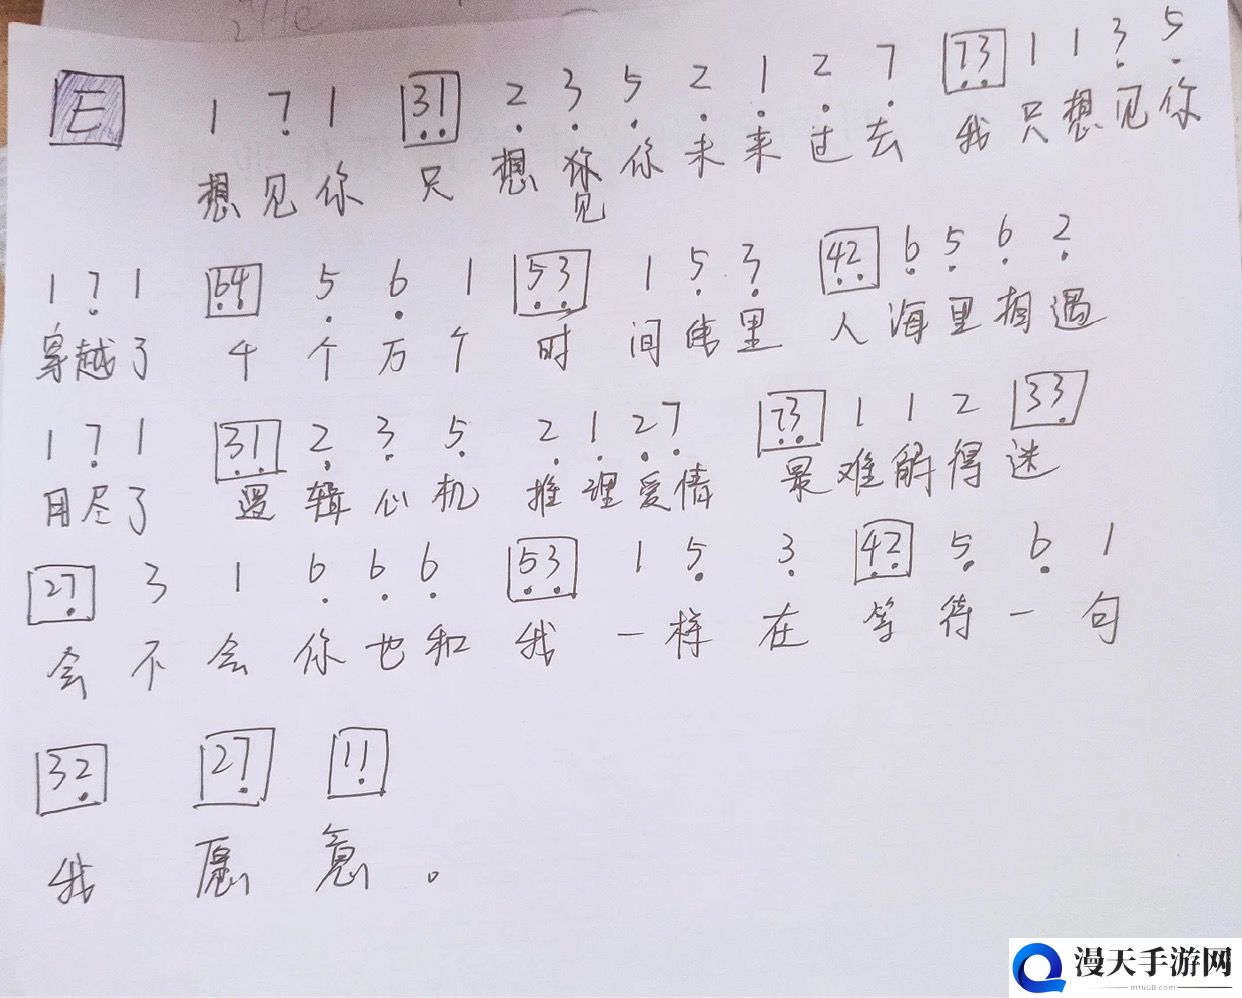 E 1 7̣ 1 [3̣1̣] 2̣ 3̣ 5̣ 2̣ 1̣ 2̣ 7̣ [7̣3̣] 1 1 3̣ 5̣
想见你 只想见你 未来过去 我只想见你
1 7̣ 1 [6̣4̣] 5̣ 6̣ 1 [5̣3̣] 1 5̣ 3̣ [42̣] 6̣ 5̣ 6̣ 2̣
穿越了 千个万个 时间线里 人海里相遇
1 7̣ 1 [3̣1̣] 2̣ 3̣ 5̣ 2̣ 1̣ 27̣ [7̣3̣] 1 1 2 [33̣]
用尽了 逻辑心机 推理爱情 最难解得迷
[27̣] 3 1 6̣ 6̣ 6̣ [5̣3̣] 1 5̣ 3̣ [4̣2̣] 5̣ 6̣ 1
会不会你也和我一样在等待一句
[32̣] [27̣] [11̣]
我愿意。
漫天手游网
mt60B.com